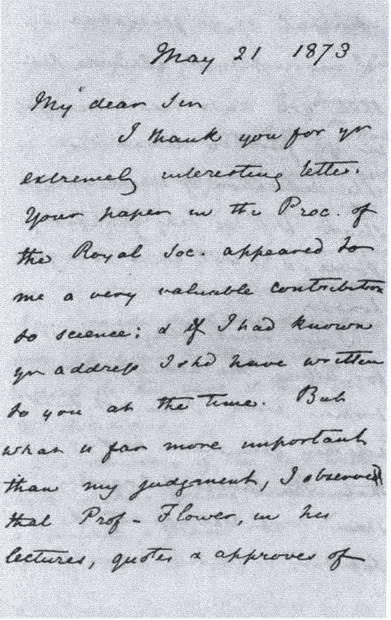 May 21 1873
My dear Sir
I thank you for yr
extremely interesting letter.
Your paper in the Proc. of
the Royal Soc. appeared to
me a very valuable contribution
to science; & if I had known
yr address I shd have written
to you at the time. But
what is far more important
than my judgment, I observed
that Prof- Flower, in his
lectures, quotes & approves of